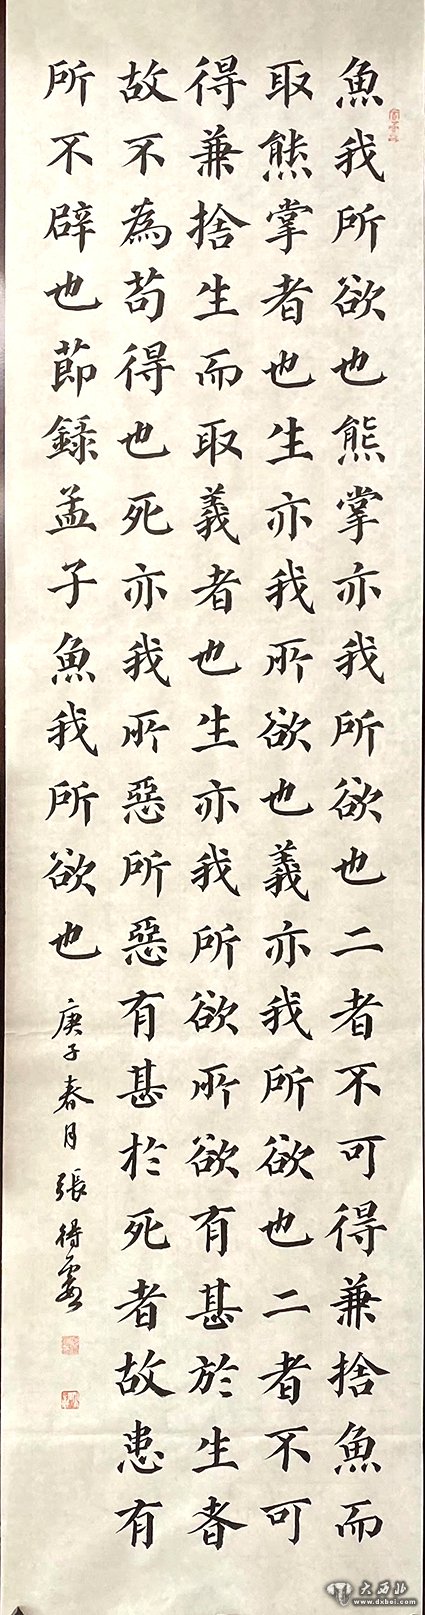 魚我所欲也熊掌亦我所欲也二者不可得兼捨魚而
取熊掌者也生亦我所欲也義亦我所欲也二者不可
得兼捨生而取義者也生亦我所欲所欲有甚於生者
故不為苟得也死亦我所惡所惡有甚於死者故患有
所不辟也節錄孟子魚我所欲也
庚子春月張得
大西北
www.dxbei.com